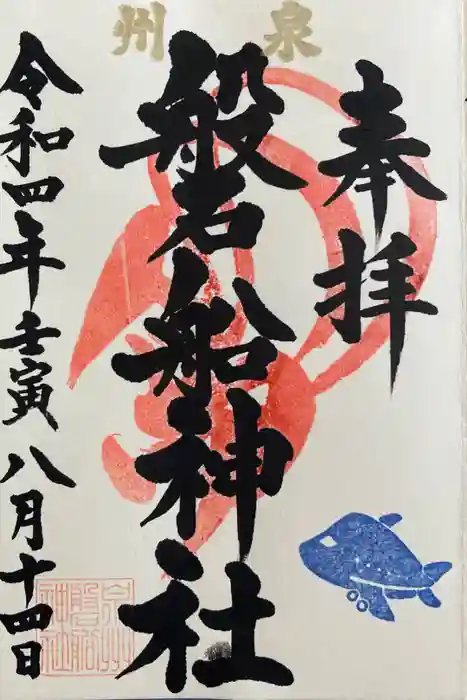 泉州
奉拝
磐船神社
令和四年壬寅八月十四日
泉州
磐船
神社